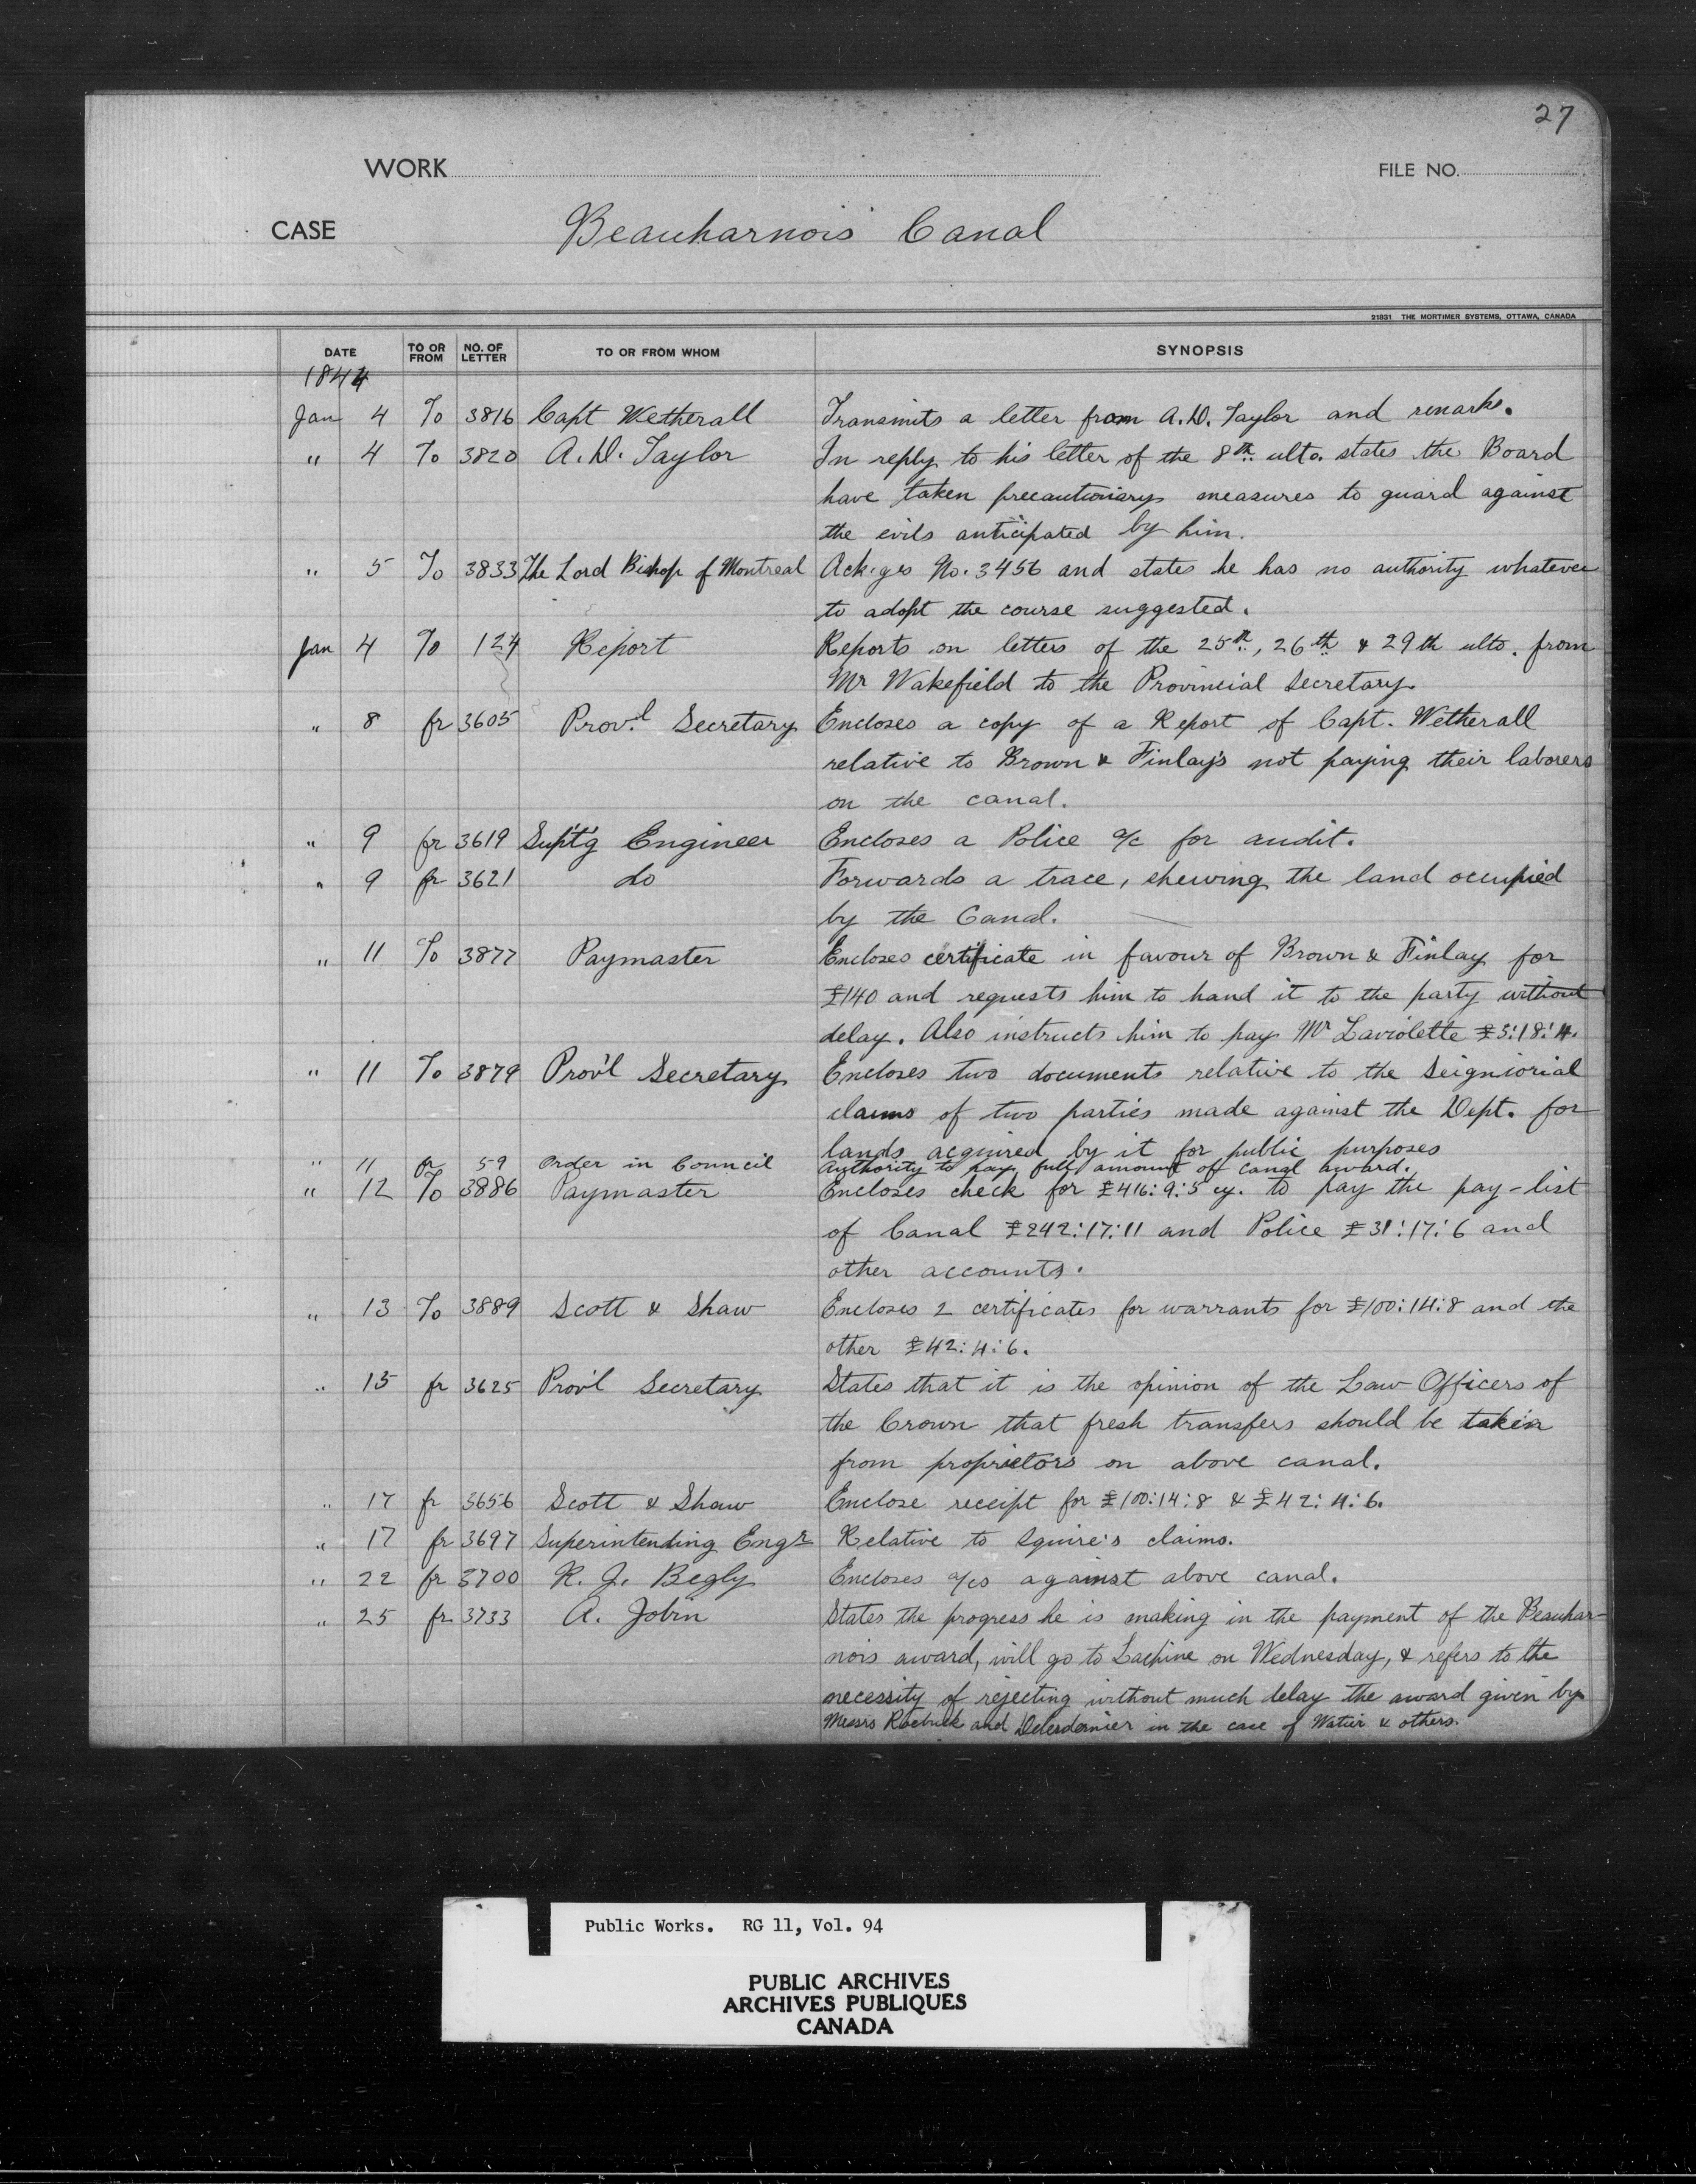 27
WORK
FILE NO.
CASE Beauharnois Canal
21831 THE MORTIMER SYSTEMS, OTTAWA, CANADA
DATE TO OR FROM NO. OF LETTER TO OR FROM WHOM SYNOPSIS
1844
Jan 4 To 3816 Capt Wetherall Transmits a letter from A.D. Taylor and remarks.
" 4 To 3820 A.D. Taylor In reply to his letter of the 8th ulto. states the Board
have taken precautionary measures to guard against
the evils anticipated by him.
" 5 To 3833 The Lord Bishop of Montreal Ack.ges No. 3456 and states he has no authority whatever
to adopt the course suggested.
Jan 4 To 124 Report Reports on letters of the 25th, 26th & 29th ulto. from
Mr Wakefield to the Provincial Secretary.
" 8 fr 3605 Prov.l Secretary Encloses a copy of a Report of Capt. Wetherall
relative to Brown & Finlay's not paying their laborers
on the canal.
" 9 fr 3619 Supt'g Engineer Encloses a Police a/c for audit.
" 9 fr 3621 do Forwards a trace, shewing the land occupied
by the Canal.
" 11 To 3877 Paymaster Encloses certificate in favour of Brown & Finlay for
£140 and requests him to hand it to the party without
delay. Also instructs him to pay Mr Laviolette £5:18:4.
" 11 To 3879 Prov'l Secretary Encloses two documents relative to the Seigniorial
claims of two parties made against the Dept. for
lands acquired by it for public purposes
" 11 fr 59 Order in Council Authority to pay full amount of canal award.
" 12 To 3886 Paymaster Encloses check for £416:9:5 cy. to pay the pay-list
of Canal £242:17:11 and Police £31:17:6 and
other accounts.
" 13 To 3889 Scott & Shaw Encloses 2 certificates for warrants for £100:14:8 and the
other £42:4:6.
" 15 fr 3625 Prov'l Secretary States that it is the opinion of the Law Officers of
the Crown that fresh transfers should be taken
from proprietors on above canal.
" 17 fr 3656 Scott & Shaw Enclose receipt for £100:14:8 & £42:4:6.
" 17 fr 3697 Superintending Engr Relative to Squire's claims.
" 22 fr 3700 R. J. Begly Encloses a/cs against above canal.
" 25 fr 3733 A. Jobin States the progress he is making in the payment of the Beauhar-
nois award, will go to Lachine on Wednesday, & refers to the
necessity of rejecting without much delay the award given by
Messrs Roebuck and Delesdernier in the case of Watier & others.
Public Works. RG 11, Vol. 94
PUBLIC ARCHIVES
ARCHIVES PUBLIQUES
CANADA